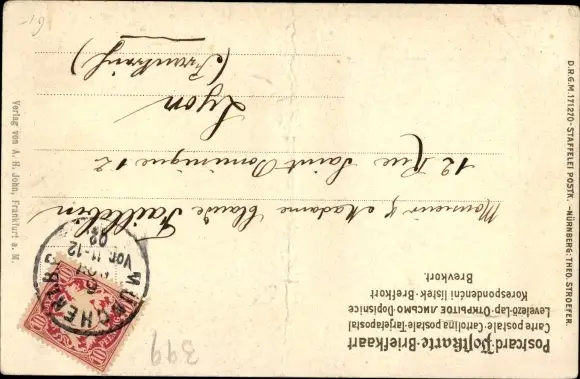 Postcard·Postkarte·Briefkaart
Carte postale·Cartolina postale·Tarjetapostal
Levelező-Lap·Открытое письмо·Dopisnice
Korespondenční lístek·Brefkort
Brevkort.
Monsieur & Madame Claude
12 Rue Saint Dominique 12
Lyon
(Frankreich)
MÜNCHEN
VOR. 11-12
02
10
10
D.R.G.M. 171270·STAFFELEI POSTK.·NÜRNBERG: THEO. STROEFER.
Verlag von A. H. John, Frankfurt a. M.
399